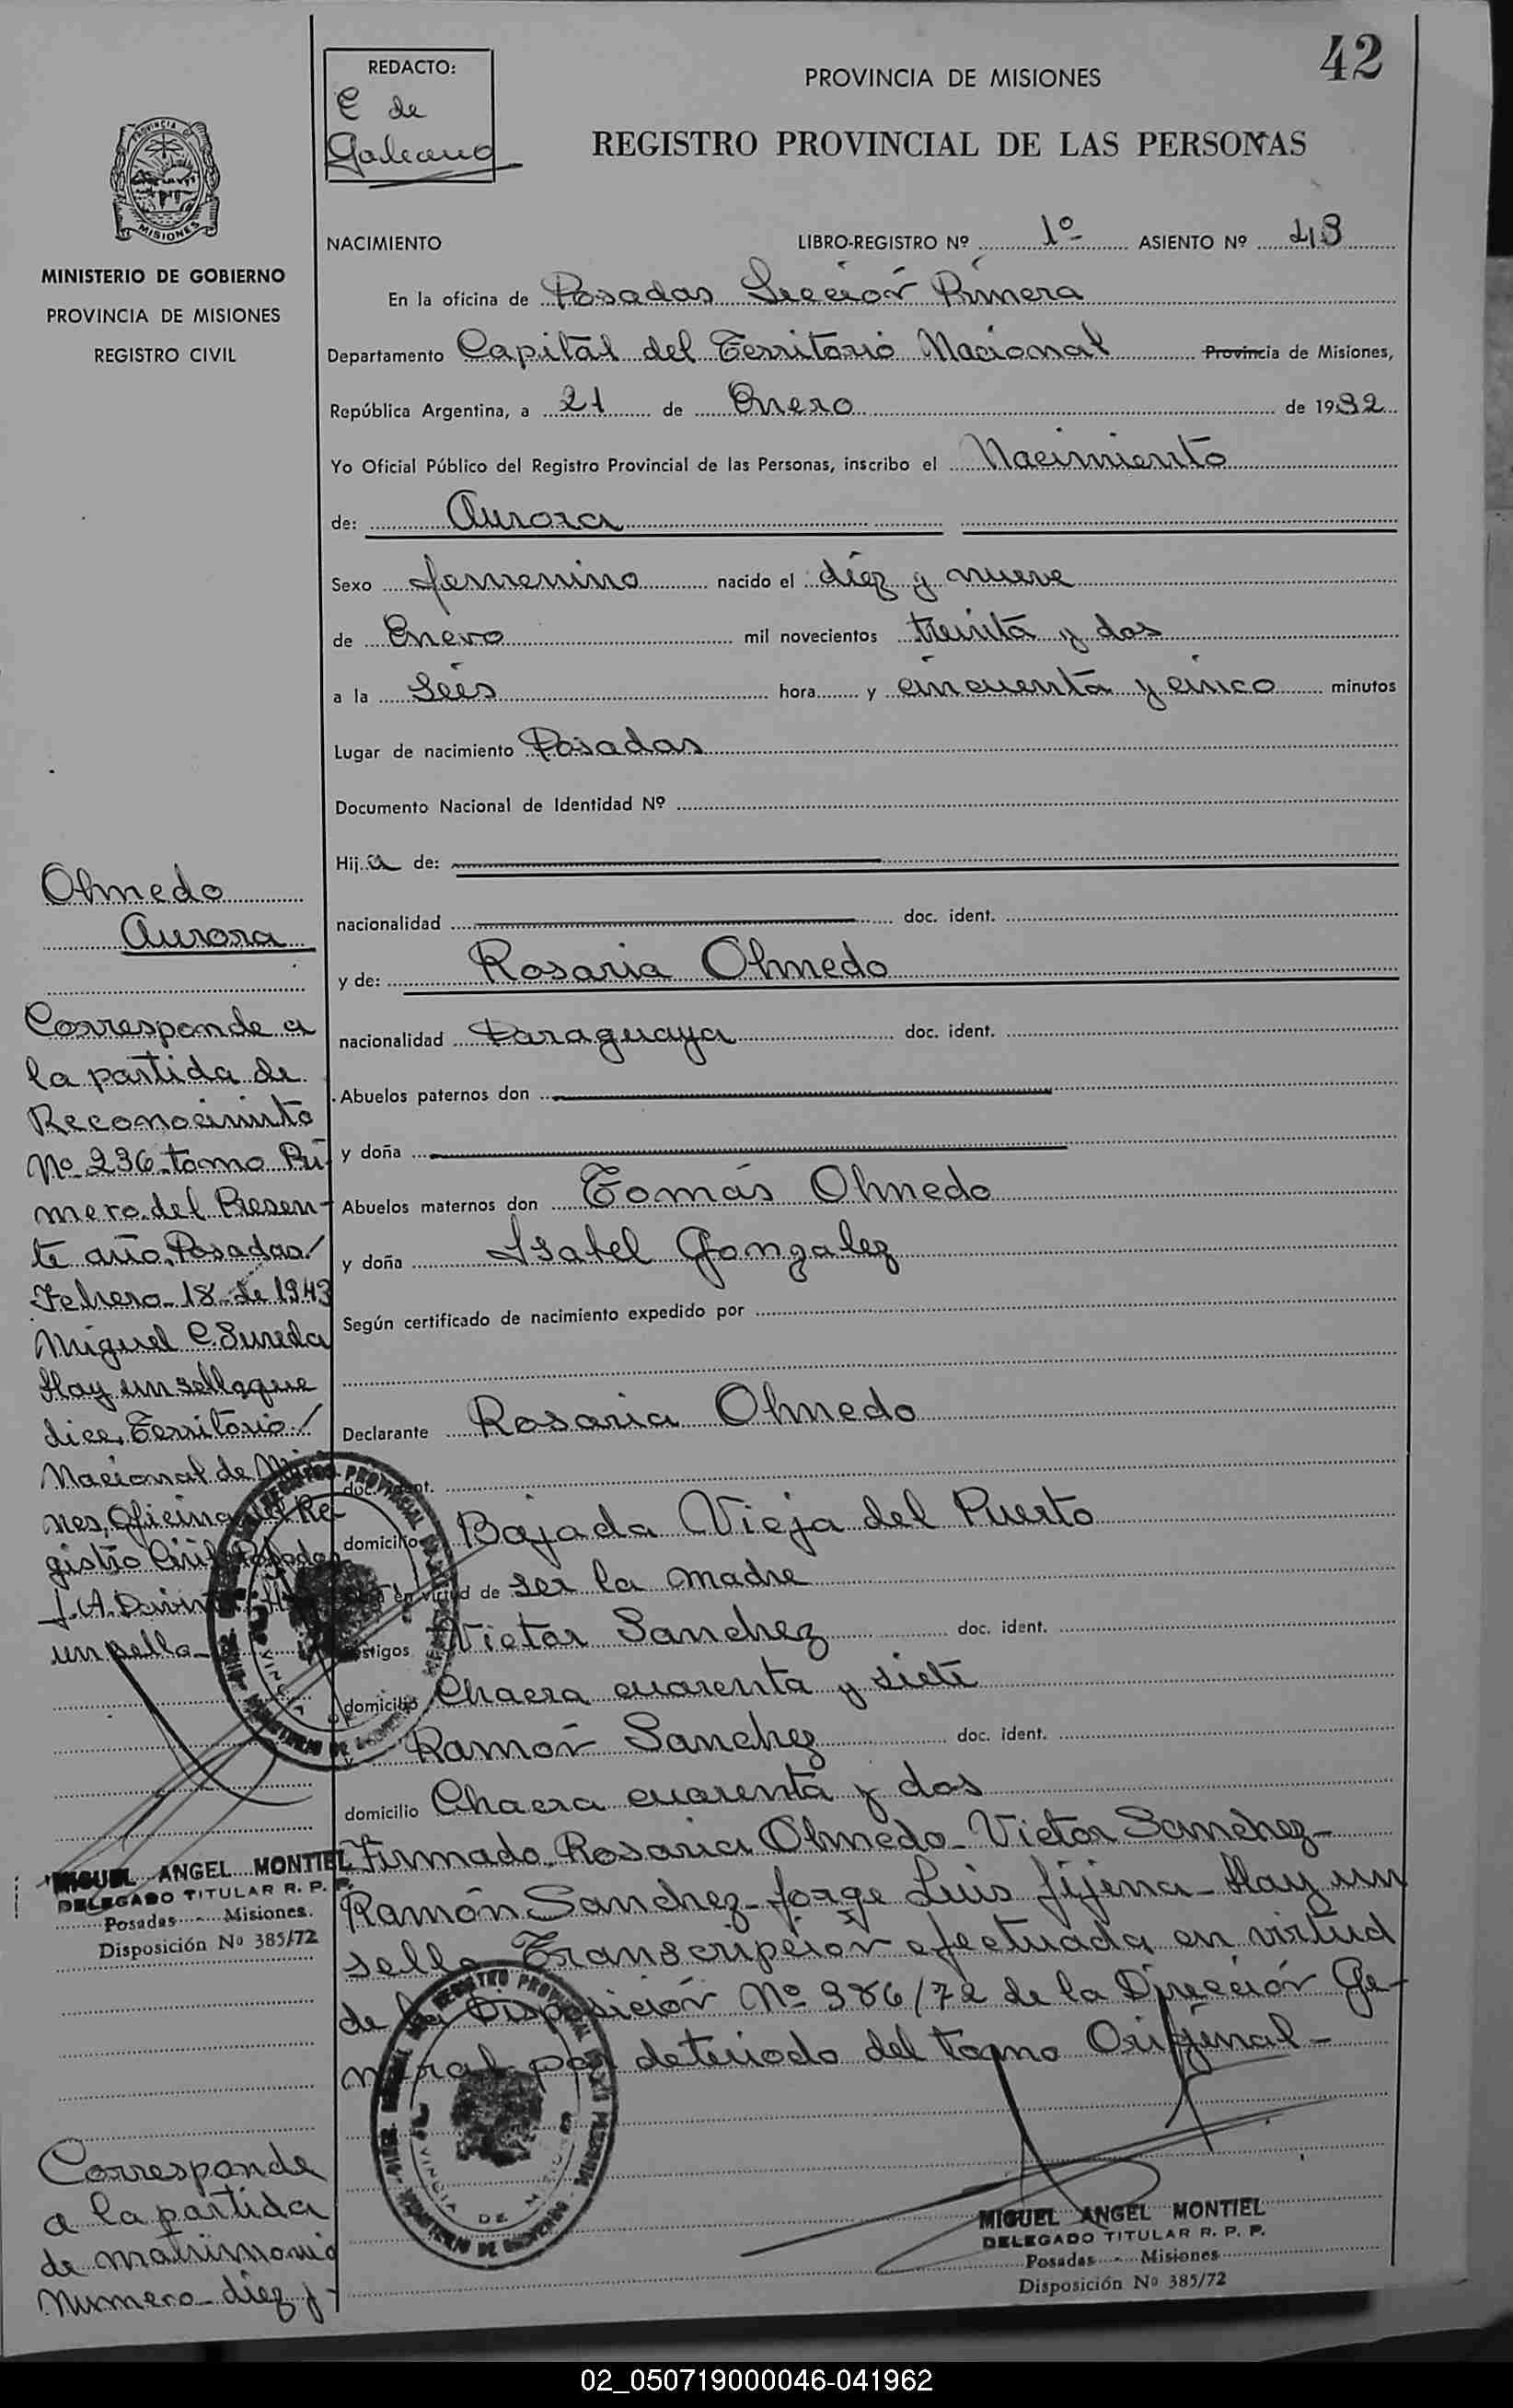 42
REDACTO:
E de
Galeano
PROVINCIA DE MISIONES
REGISTRO PROVINCIAL DE LAS PERSONAS
PROVINCIA DE
MISIONES
MINISTERIO DE GOBIERNO
PROVINCIA DE MISIONES
REGISTRO CIVIL
NACIMIENTO LIBRO-REGISTRO Nº 1º ASIENTO Nº 43
En la oficina de Posadas Sección Primera
Departamento Capital del Territorio Nacional Provincia de Misiones,
República Argentina, a 21 de Enero de 1932
Yo Oficial Público del Registro Provincial de las Personas, inscribo el Nacimiento
de: Aurora
Sexo femenino nacido el diez y nueve
de Enero mil novecientos treinta y dos
a la Seis hora y cincuenta y cinco minutos
Lugar de nacimiento Posadas
Documento Nacional de Identidad Nº
Hija de:
nacionalidad doc. ident.
y de: Rosaria Olmedo
nacionalidad Paraguaya doc. ident.
Abuelos paternos don
y doña
Abuelos maternos don Tomás Olmedo
y doña Isabel Gonzalez
Según certificado de nacimiento expedido por
Declarante Rosaria Olmedo
doc. ident.
domicilio Bajada Vieja del Puerto
en virtud de ser la madre
testigos Victor Sanchez doc. ident.
domicilio Chacra cuarenta y siete
y Ramón Sanchez doc. ident.
domicilio Chacra cuarenta y dos
Firmado. Rosaria Olmedo - Victor Sanchez -
Ramón Sanchez - Jorge Luis Jijena - Hay un
sello Transcripción efectuada en virtud
de la Disposición Nº 386/72 de la Dirección Ge-
neral por deteriodo del tomo Original -
MIGUEL ANGEL MONTIEL
DELEGADO TITULAR R. P. P.
Posadas - Misiones
Disposición Nº 385/72
Olmedo
Aurora
Corresponde a
la partida de
Reconocimiento
Nº 236 tomo Pri-
mero del Presen-
te año, Posadas/
Febrero 18 de 1943
Miguel C. Sureda
Hay un sello que
dice, Territorio/
Nacional de Misio
nes, Oficina del Re-
gistro Civil Posadas
J. A.
un sello
MIGUEL ANGEL MONTIEL
DELEGADO TITULAR R. P. P.
Posadas - Misiones.
Disposición Nº 385/72
Corresponde
a la partida
de matrimonio
Numero diez y
02_050719000046-041962